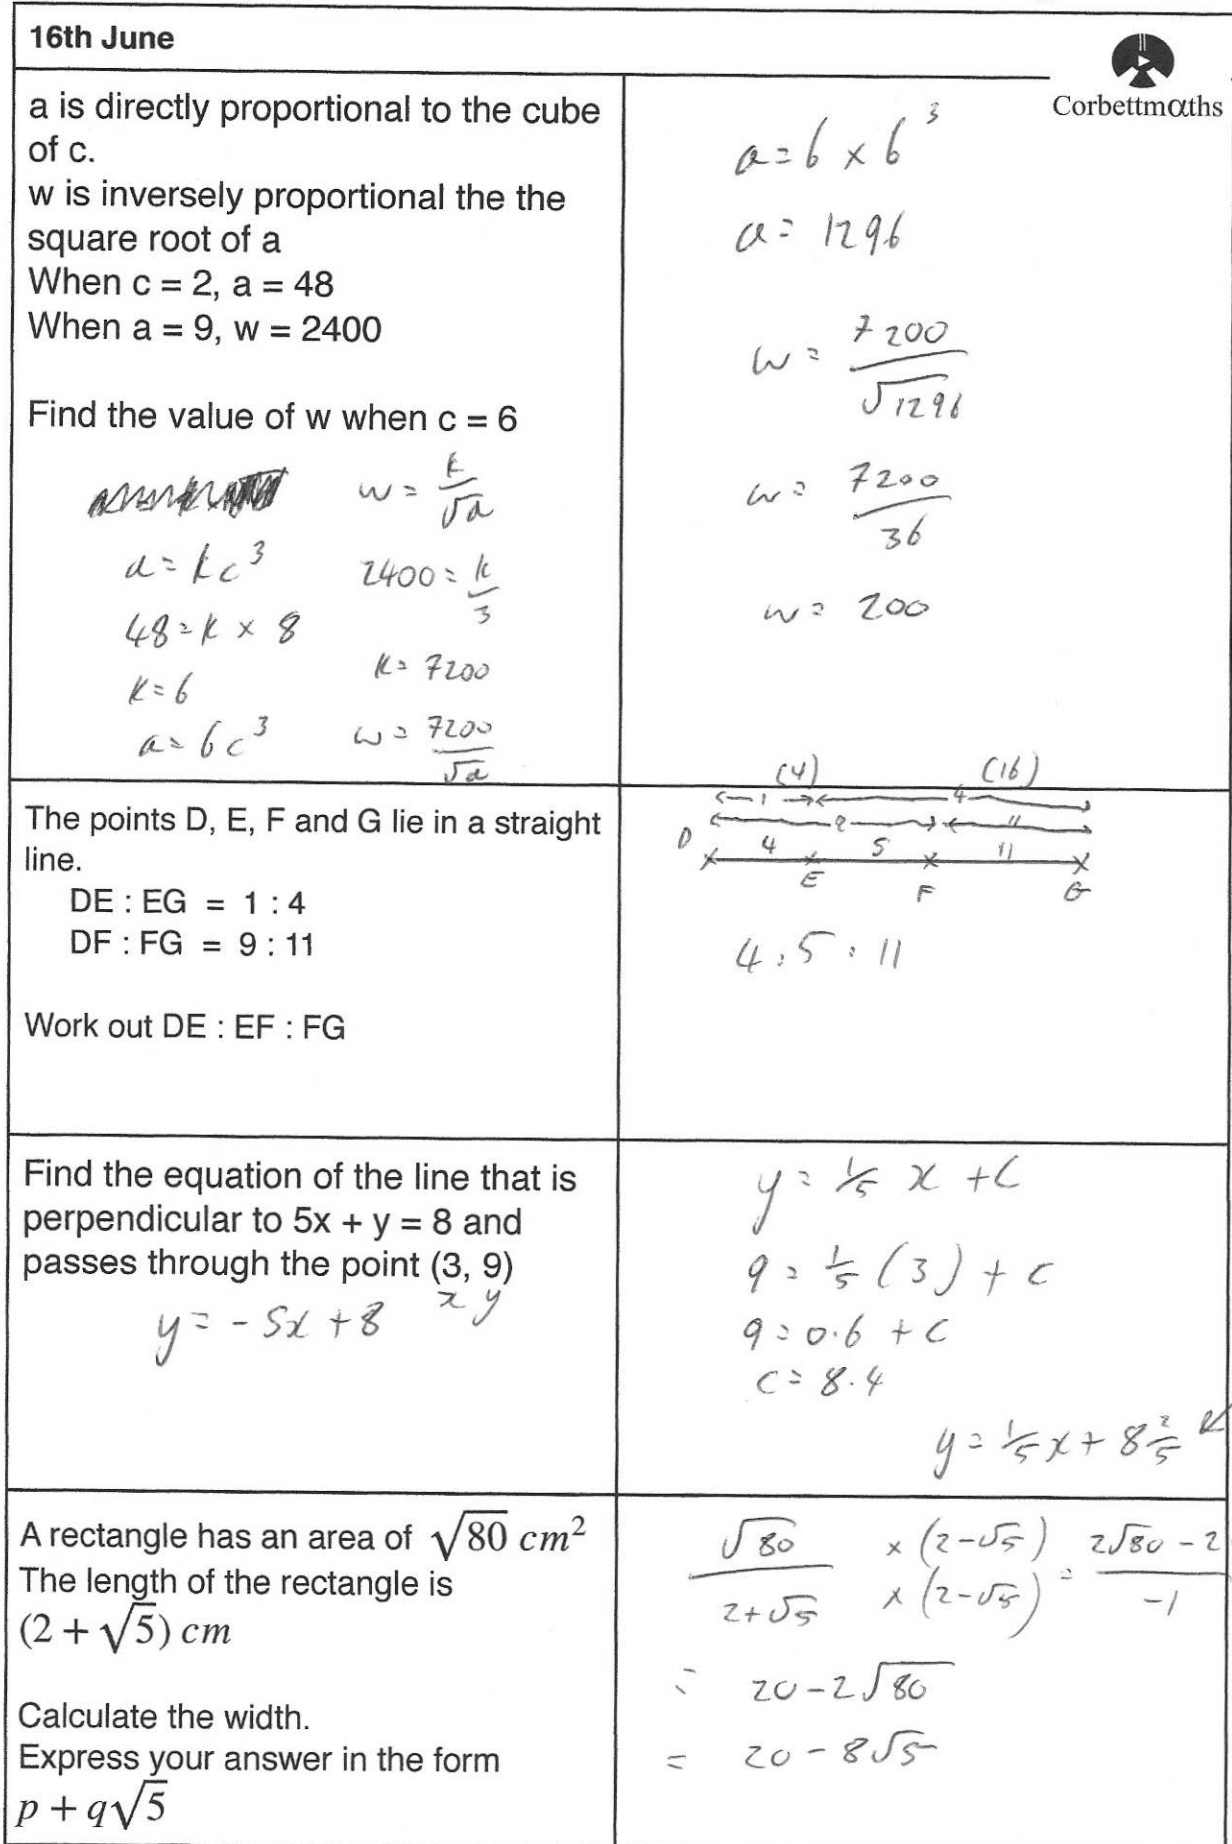 16th June
Corbettmαths
a is directly proportional to the cube
of c.
w is inversely proportional the the
square root of a
When c = 2, a = 48
When a = 9, w = 2400
Find the value of w when c = 6
w = k/√a
a = kc³
2400 = k/3
48 = k × 8
k = 7200
k = 6
a = 6c³
w = 7200/√a
a = 6 × 6³
a = 1296
w = 7200/√1296
w = 7200/36
w = 200
The points D, E, F and G lie in a straight
line.
DE : EG = 1 : 4
DF : FG = 9 : 11
Work out DE : EF : FG
(4) (16)
1 4
9 11
D 4 5 11
E F G
4 : 5 : 11
Find the equation of the line that is
perpendicular to 5x + y = 8 and
passes through the point (3, 9)
x y
y = -5x + 8
y = 1/5 x + c
9 = 1/5 (3) + c
9 = 0.6 + c
c = 8.4
y = 1/5 x + 8 2/5
A rectangle has an area of √80 cm²
The length of the rectangle is
(2 + √5) cm
Calculate the width.
Express your answer in the form
p + q√5
√80 × (2-√5) = 2√80 - 2
2+√5 × (2-√5) -1
= 20 - 2√80
= 20 - 8√5